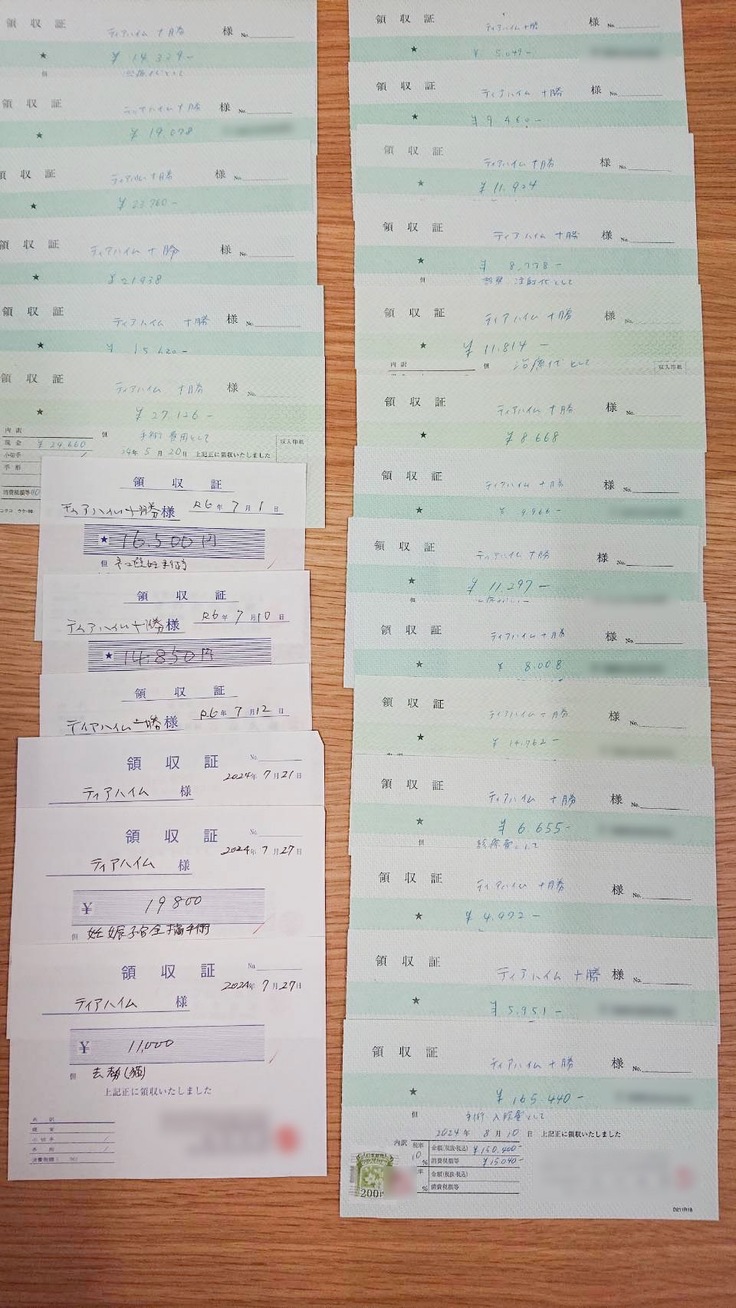 領収証
ティアハイム 十勝 様 No.
★ ¥14,329-
但
領収証
ティアハイム 十勝 様 No.
★ ¥19,078
領収証
ティアハイム 十勝 様 No.
★ ¥22,760-
領収証
ティアハイム 十勝 様 No.
★ ¥21,938
領収証
ティアハイム 十勝 様 No.
★ ¥15,620-
領収証
ティアハイム 十勝 様 No.
★ ¥27,126-
但 手術費用として
内訳
現金 ¥24,660
小切手
手形
消費税額等
24年5月20日 上記正に領収いたしました
収入印紙
領収証
ティアハイム十勝様 R6年7月1日
★ 16,500円
但
領収証
ティアハイム十勝様 R6年7月10日
★ 14,850円
領収証
ティアハイム十勝様 R6年7月12日
領収証 No
2024年7月21日
ティアハイム 様
領収証 No
2024年7月27日
ティアハイム 様
¥ 19800
但 妊娠子宮全摘手術
領収証 No
2024年7月27日
ティアハイム 様
¥ 11,000
但 去勢(猫)
上記正に領収いたしました
内訳
現金
小切手
手形
消費税額
領収証
ティアハイム 十勝 様 No.
★
領収証
ティアハイム 十勝 様 No.
★ ¥9,460-
領収証
ティアハイム 十勝 様 No.
★ ¥11,924
領収証
ティアハイム 十勝 様 No.
★ ¥8,778-
但
領収証
ティアハイム 十勝 様 No.
★ ¥11,814-
内訳
但 治療代として
収入印紙
領収証
ティアハイム 十勝 様 No.
★ ¥8,668
領収証
ティアハイム 十勝 様 No.
★ ¥4,966-
領収証
ティアハイム 十勝 様 No.
★ ¥11,297-
領収証
ティアハイム 十勝 様 No.
★ ¥8,008
領収証
ティアハイム 十勝 様 No.
★
領収証
ティアハイム 十勝 様 No.
★ ¥6,655-
但
領収証
ティアハイム 十勝 様 No.
★ ¥4,972-
領収証
ティアハイム 十勝 様 No.
★ ¥5,951-
領収証
ティアハイム 十勝 様 No.
★ ¥165,440-
但 手術、入院費として
2024年8月10日 上記正に領収いたしました
内訳 税率 10% 金額(税抜・税込) ¥150,400-
消費税額等 ¥15,040-
% 金額(税抜・税込)
消費税額等
200円